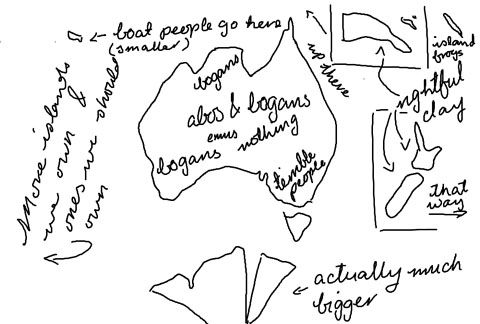 ← boat people go here
(smaller)
up there
island
boys
rightful
clay
bogans
abos & bogans
emus
bogans nothing
terrible
people
More islands
we own &
ones we should
own
that
way
← actually much
bigger